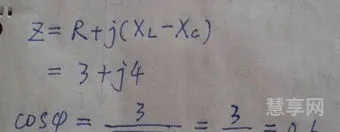 Z = R + j(X_L - X_C)
= 3 + j4
cosφ = 3/ = 3/ = 0.
慧享网